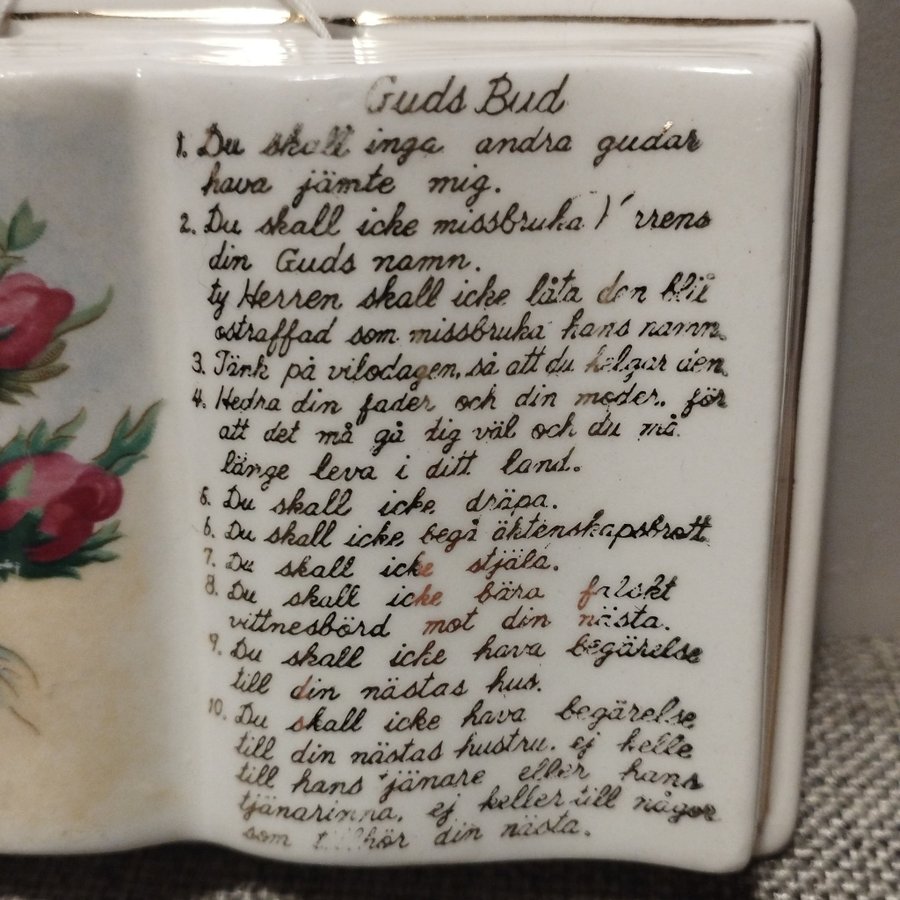 Guds Bud
1. Du skall inga andra gudar
hava jämte mig.
2. Du skall icke missbruka rrens
din Guds namn.
ty Herren skall icke låta den bli
ostraffad som missbruka hans namn.
3. Tänk på vilodagen, så att du helgar den.
4. Hedra din fader och din moder. för
att det må gå dig väl och du må
länge leva i ditt land.
5. Du skall icke dräpa.
6. Du skall icke begå äktenskapsbrott
7. Du skall icke stjäla.
8. Du skall icke bära falskt
vittnesbörd mot din nästa.
9. Du skall icke hava begärelse
till din nästas hus.
10. Du skall icke hava begärelse
till din nästas hustru. ej helle
till hans tjänare eller hans
tjänarinna. ej heller till någor
som tillhör din nästa.